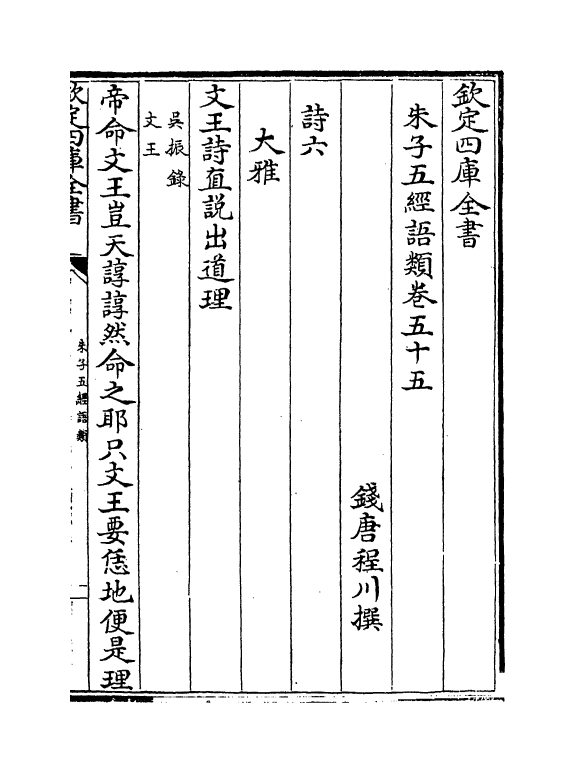 欽定四庫全書
朱子五經語類卷五十五
錢唐程川撰
詩六
大雅
文王詩直説出道理
吳振錄
文王
帝命文王豈天諄諄然命之耶只文王要恁地便是理
欽定四庫全書
朱子五經語類
一